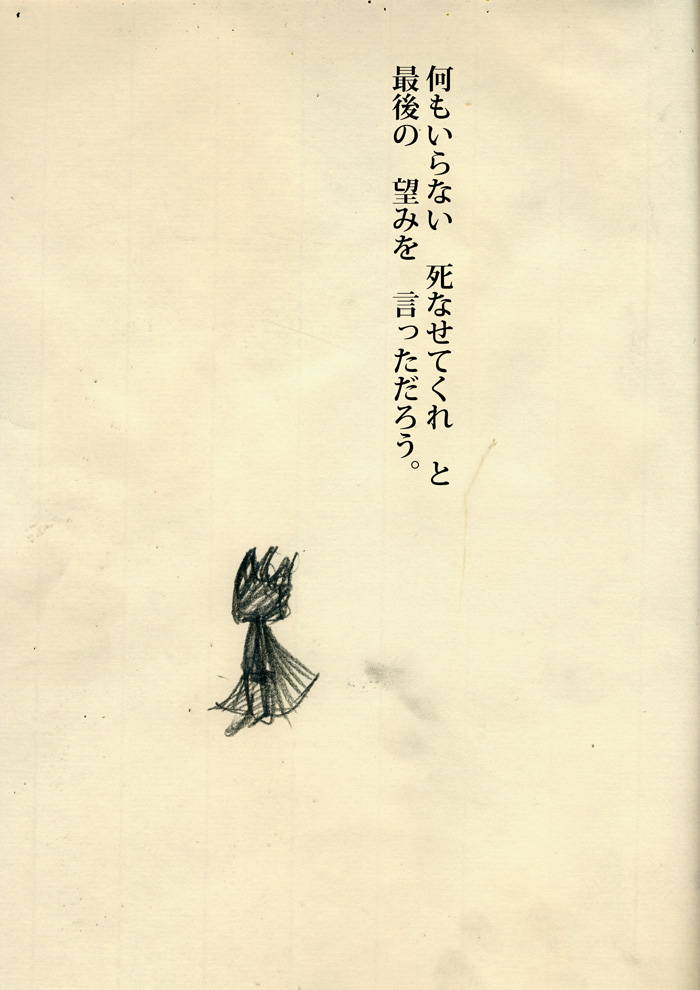 何もいらない　死なせてくれ　と
最後の　望みを　言っただろう。